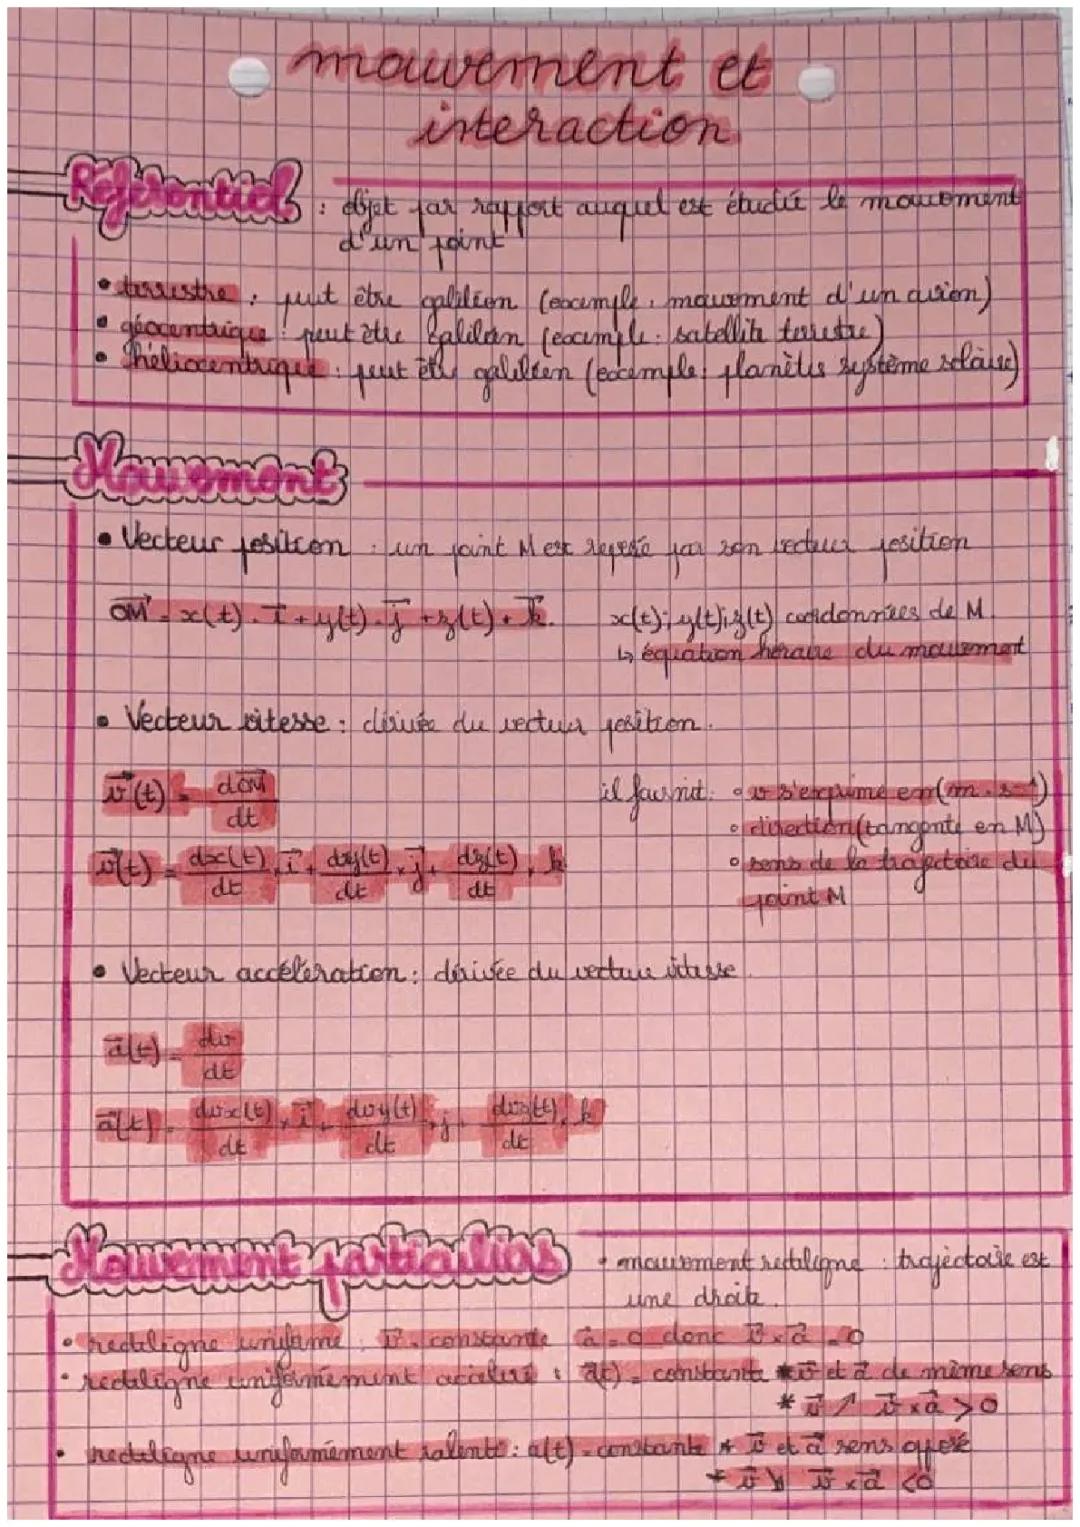 mouvement et
interaction
Référentiel : objet par rapport auquel est étudié le mouvement
d'un point
• terrestre : peut être galiléen (exemple : mouvement d'un avion)
• géocentrique : peut être galiléen (exemple : satellite terrestre)
• héliocentrique : peut être galiléen (exemple : planètes système solaire)
Mouvement
• Vecteur position : un point M est repéré par son vecteur position
OM⃗ = x(t) . i⃗ + y(t) . j⃗ + z(t) . k⃗. x(t); y(t); z(t) coordonnées de M.
↳ équation horaire du mouvement
• Vecteur vitesse : dérivée du vecteur position.
v⃗(t) = dOM⃗/dt il fournit : • v s'exprime en (m.s⁻¹)
• direction (tangente en M)
v⃗(t) = dx(t)/dt × i⃗ + dy(t)/dt × j⃗ + dz(t)/dt × k • sens de la trajectoire du
point M
• Vecteur accéleration : dérivée du vecteur vitesse.
a⃗(t) = dv/dt
a⃗(t) = dvx(t)/dt × i⃗ + dvy(t)/dt × j + dvz(t)/dt × k
Mouvement particuliers • mouvement rectiligne : trajectoire est
une droite.
• rectiligne uniforme : v⃗ = constante a⃗ = 0 donc v⃗ × a⃗ = 0
• rectiligne uniformément accéléré : a⃗(t) = constante * v⃗ et a⃗ de même sens
* v⃗ ↗ v⃗ × a⃗ > 0
• rectiligne uniformément ralenti : a(t) = constante * v⃗ et a⃗ sens opposé
* v⃗ ↘ v⃗ × a⃗ < 0